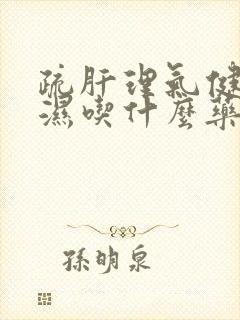 疏肝理氣健
濕喫什麼藥
孫明泉